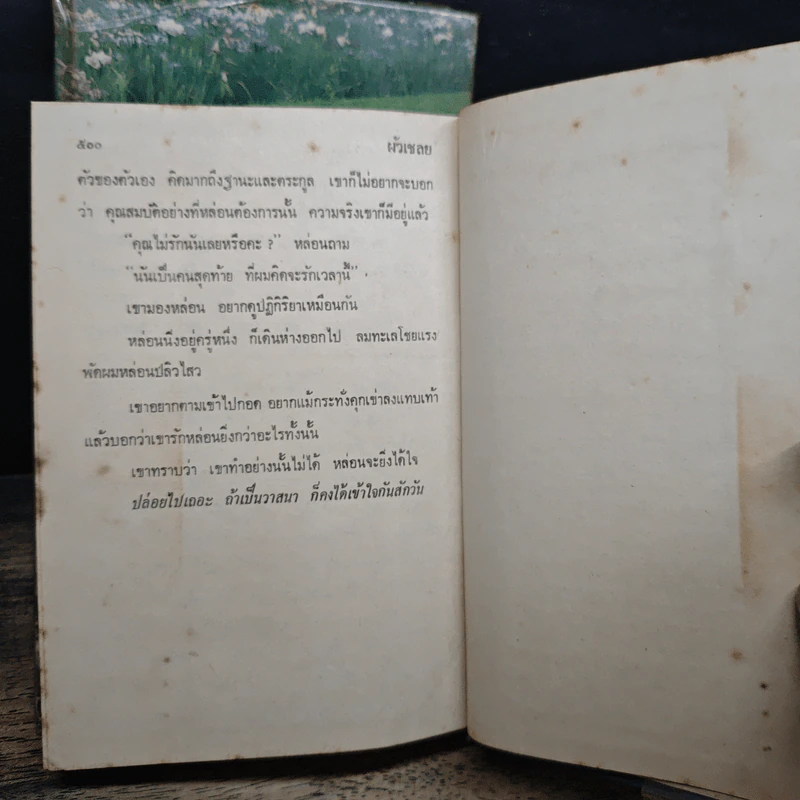 ๕๐๐ ผัวเชลย
ตัวของตัวเอง คิดมากถึงฐานะและตระกูล เขาก็ไม่อยากจะบอก
ว่า คุณสมบัติอย่างที่หล่อนต้องการนั้น ความจริงเขาก็มีอยู่แล้ว
"คุณไม่รักนันเลยหรือคะ ?" หล่อนถาม
"นันเป็นคนสุดท้าย ที่ผมคิดจะรักเวลานี้"
เขามองหล่อน อยากดูปฏิกิริยาเหมือนกัน
หล่อนนิ่งอยู่ครู่หนึ่ง ก็เดินห่างออกไป ลมทะเลโชยแรง
พัดผมหล่อนปลิวไสว
เขาอยากตามเข้าไปกอด อยากแม้กระทั่งคุกเข่าลงแทบเท้า
แล้วบอกว่าเขารักหล่อนยิ่งกว่าอะไรทั้งนั้น
เขาทราบว่า เขาทำอย่างนั้นไม่ได้ หล่อนจะยิ่งได้ใจ
ปล่อยไปเถอะ ถ้าเป็นวาสนา ก็คงได้เข้าใจกันสักวัน